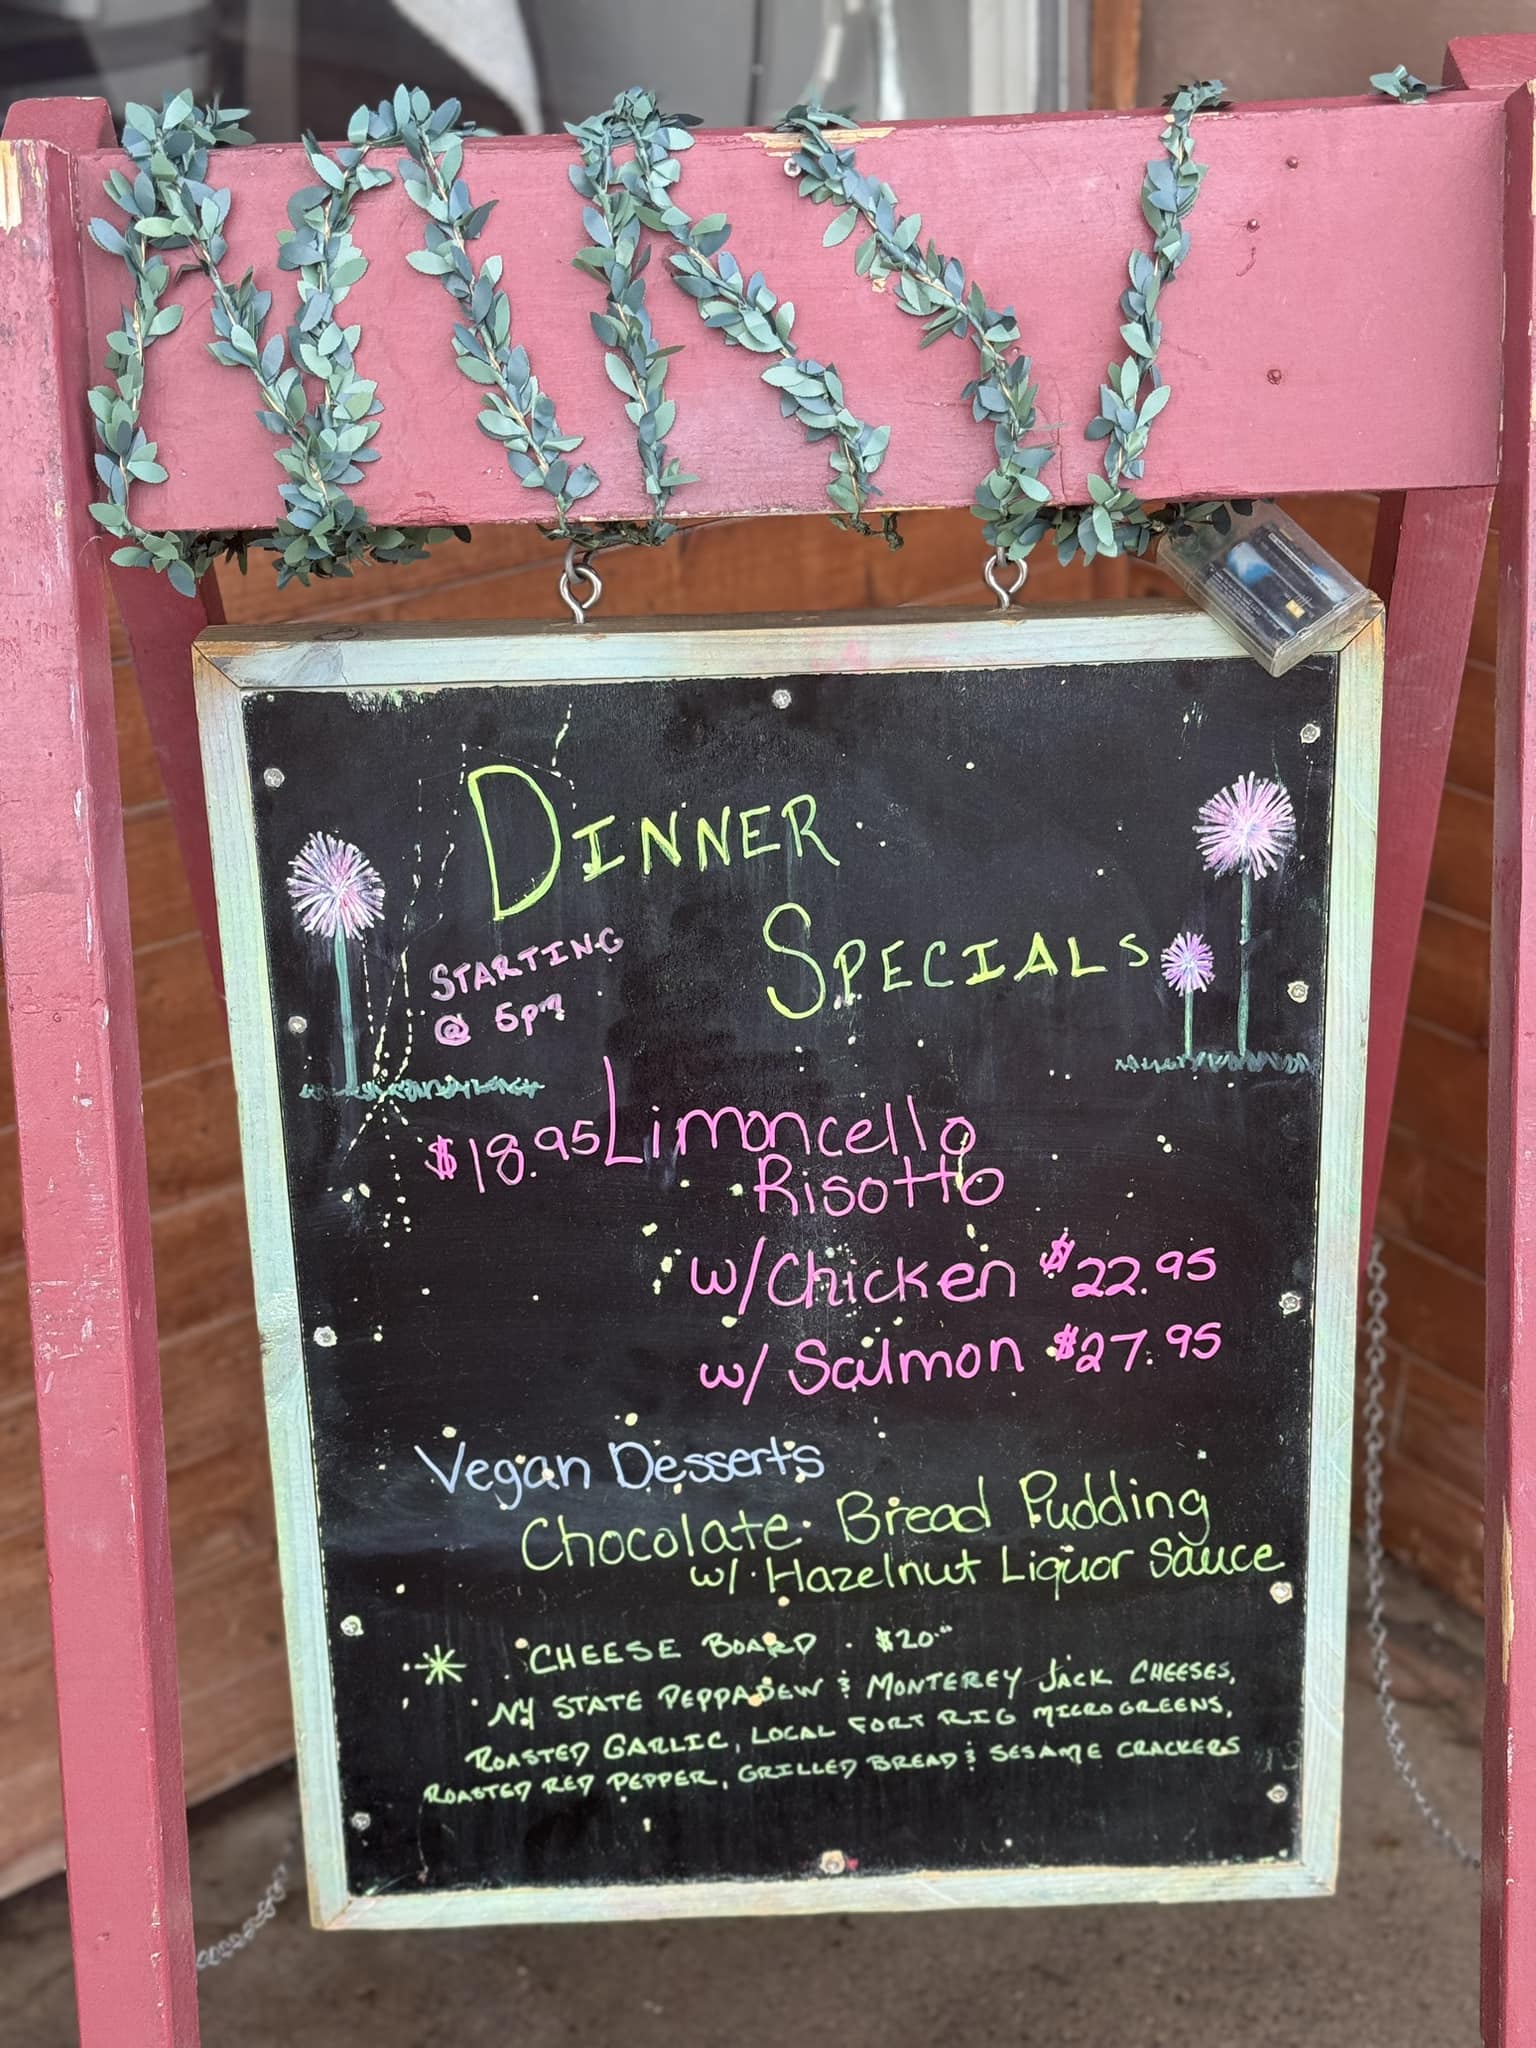 DINNER
SPECIALS
STARTING
@ 5pm
$18.95 Limoncello
Risotto
w/Chicken $22.95
w/ Salmon $27.95
Vegan Desserts
Chocolate Bread Pudding
w/ Hazelnut Liquor Sauce
CHEESE BOARD $20.00
NY STATE PEPPADEW & MONTEREY JACK CHEESES,
ROASTED GARLIC, LOCAL FORT RIG MICROGREENS,
ROASTED RED PEPPER, GRILLED BREAD & SESAME CRACKERS